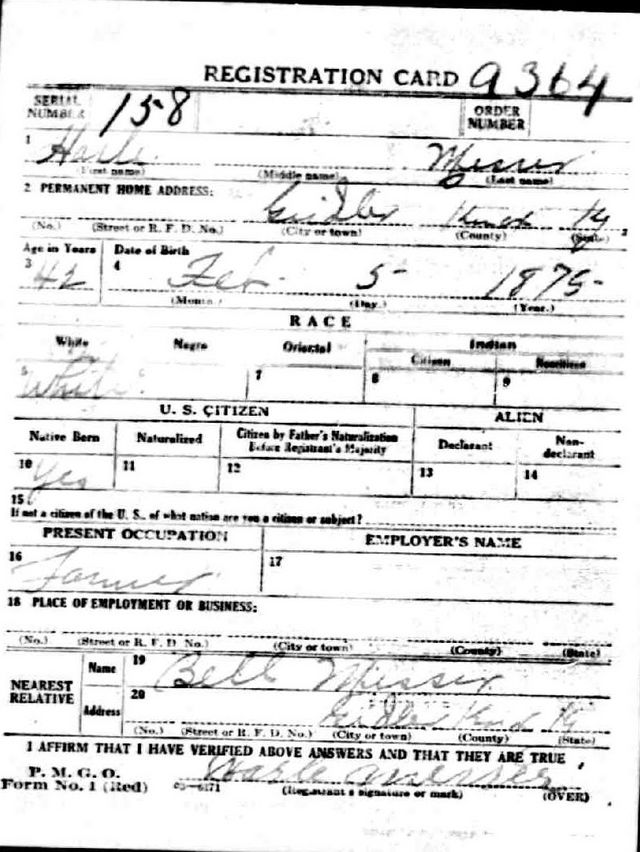 REGISTRATION CARD 9364
SERIAL NUMBER 158 ORDER NUMBER
1 Messer
(First name) (Middle name) (Last name)
2 PERMANENT HOME ADDRESS: Knox Ky
(No.) (Street or R. F. D. No.) (City or town) (County) (State)
Age in Years Date of Birth
3 42 4 Feb 5 1875
(Month.) (Day.) (Year.)
RACE
White Negro Oriental Indian
Citizen Noncitizen
5 White 6 7 8 9
U. S. CITIZEN ALIEN
Native Born Naturalized Citizen by Father's Naturalization Before Registrant's Majority Declarant Non-declarant
10 Yes 11 12 13 14
15
If not a citizen of the U. S., of what nation are you a citizen or subject?
PRESENT OCCUPATION EMPLOYER'S NAME
16 Farmer 17
18 PLACE OF EMPLOYMENT OR BUSINESS:
(No.) (Street or R. F. D. No.) (City or town) (County) (State)
NEAREST RELATIVE Name 19 Bell Messer
Address 20 Knox Ky
(No.) (Street or R. F. D. No.) (City or town) (County) (State)
I AFFIRM THAT I HAVE VERIFIED ABOVE ANSWERS AND THAT THEY ARE TRUE
P. M. G. O.
Form No. 1 (Red) 03-6171 Messer
(Registrant's signature or mark) (OVER)